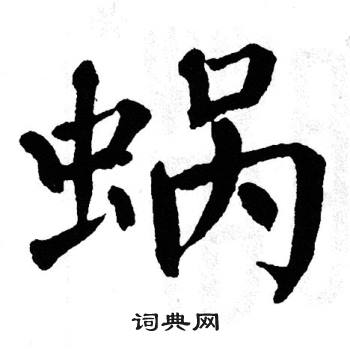 蜗
词典网